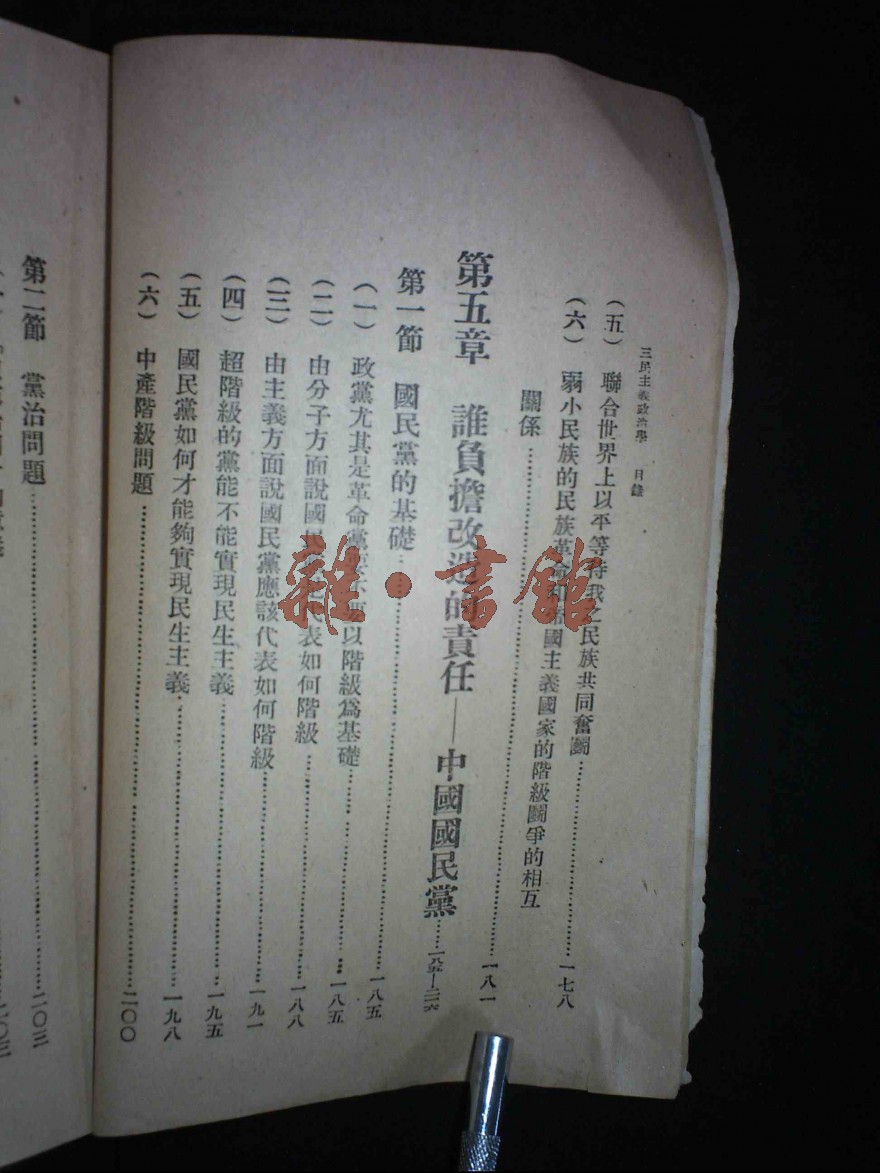 三民主義政治學 目錄
(五) 聯合世界上以平等待我之民族共同奮鬭……一七八
(六) 弱小民族的民族革命和帝國主義國家的階級鬭爭的相互
關係……一八一
第五章 誰負擔改造的責任——中國國民黨……
第一節 國民黨的基礎……一八五
(一) 政黨尤其是革命黨要以階級爲基礎……一八五
(二) 由分子方面說國民黨代表如何階級……一八八
(三) 由主義方面說國民黨應該代表如何階級……一九一
(四) 超階級的黨能不能實現民生主義……一九五
(五) 國民黨如何才能夠實現民生主義……一九八
(六) 中產階級問題……二〇〇
第二節 黨治問題……二〇三
二〇三
雜·書館